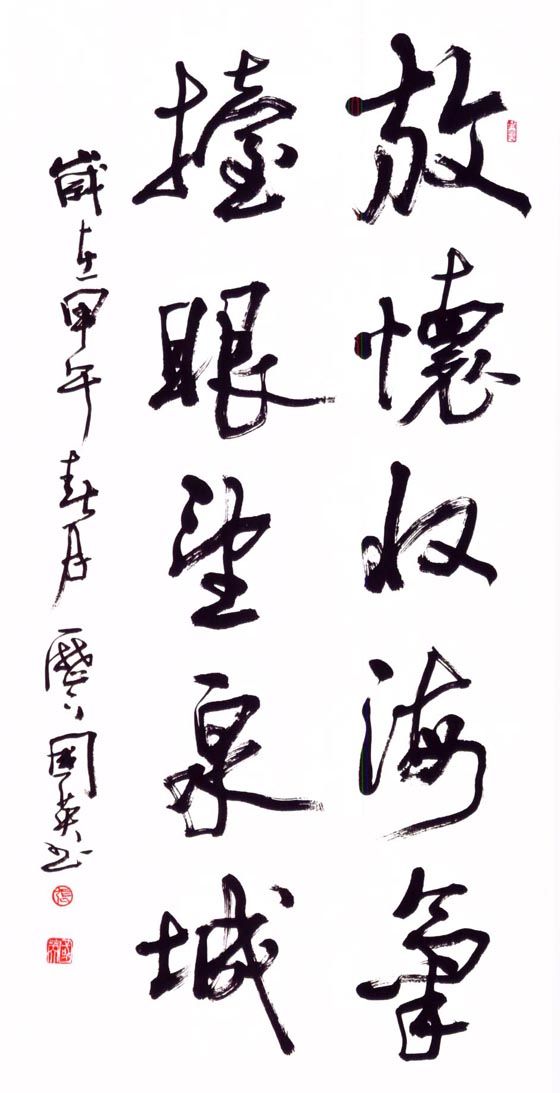 放懷收海氣
擡眼望泉城
歲在甲午春月 國英书